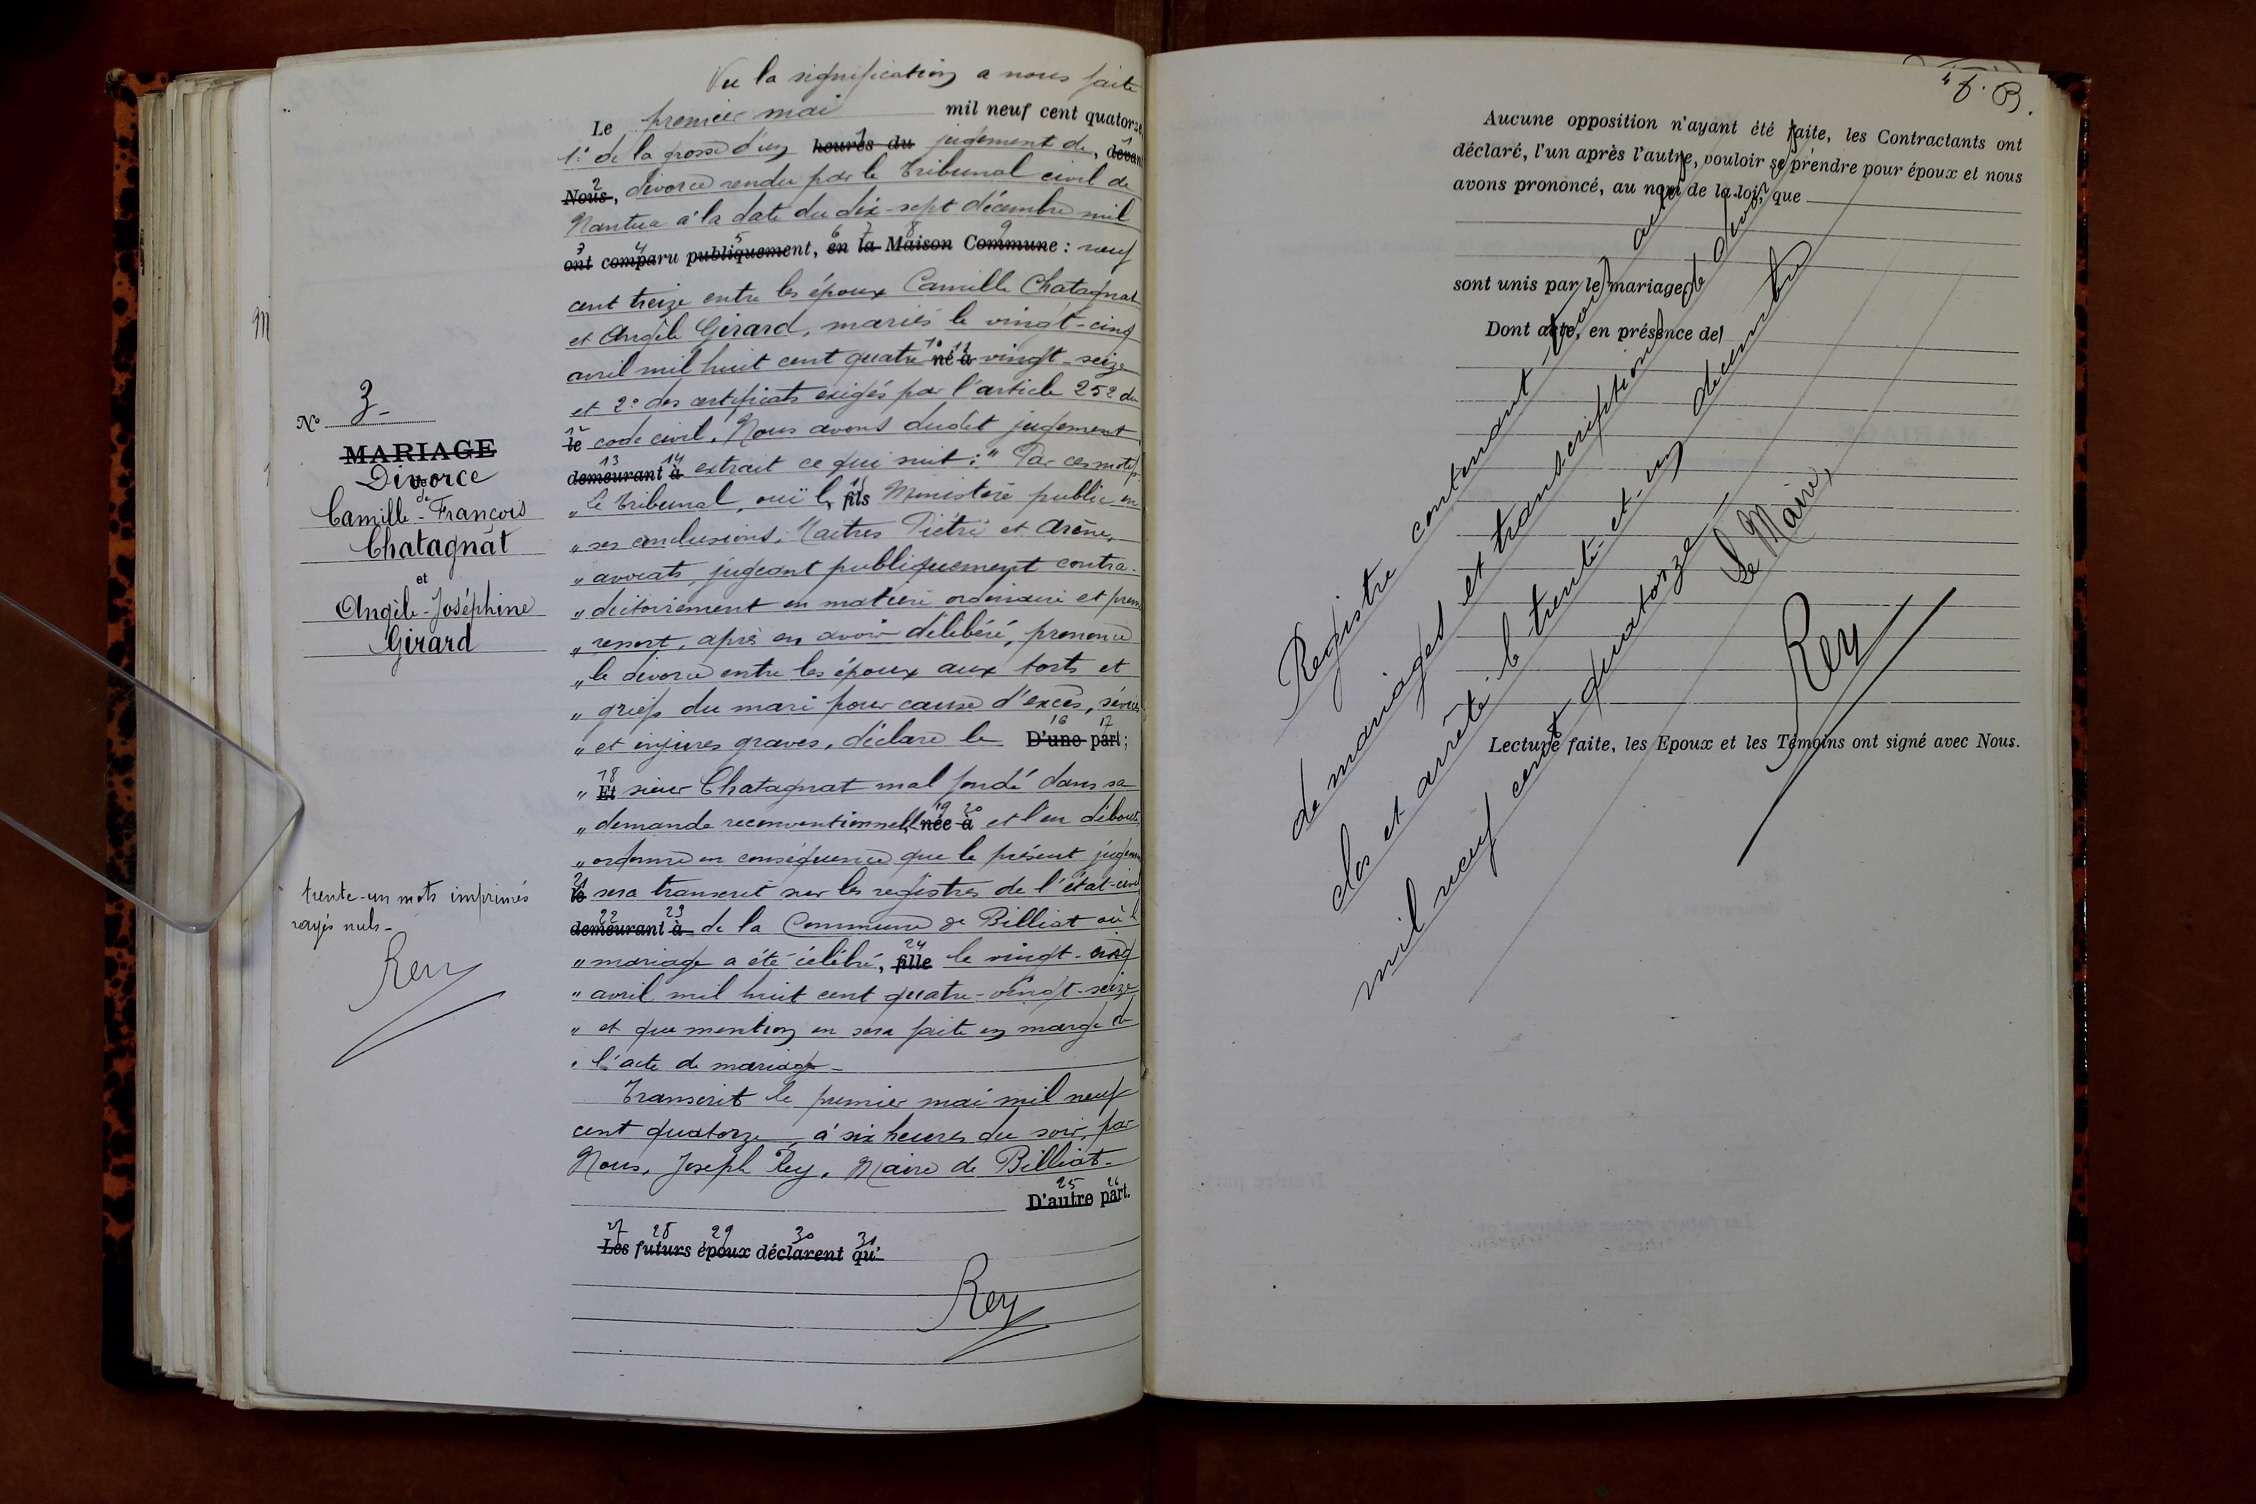 M
Nº 3-
MARIAGE
Divorce
de
Camille-François
Chatagnat
et
Angèle-Joséphine
Girard
trente-un mots imprimés
rayés nuls-
Rey
Vu la signification a nous faite
Le premier mai mil neuf cent quatorze,
1º de la grosse d'un heures du jugement de, devant
Nous, divorce rendu par le Tribunal civil de
Nantua à la date du dix-sept décembre mil
ont comparu publiquement, en la Maison Commune : neuf
cent treize entre les époux Camille Chatagnat
et Angèle Girard, mariés le vingt-cinq
avril mil huit cent quatre né à vingt-seize
et 2º des certificats exigés par l'article 252 du
le code civil. Nous avons dudit jugement
demeurant à extrait ce qui suit : " Par ces motifs
" Le Tribunal, ouï le fils Ministère public en
" ses conclusions, Maîtres Piétri et Arène,
" avocats, jugeant publiquement contra-
" dictoirement en matière ordinaire et prem
" ressort, après en avoir délibéré, prononce
" le divorce entre les époux aux torts et
" griefs du mari pour cause d'excès, sévices
" et injures graves, déclare le D'une part ;
" Et sieur Chatagnat mal fondé dans sa
" demande reconventionnelle née à et l'en déboute,
" ordonne en conséquence que le présent jugement
le sera transcrit sur les registres de l'état-civil
demeurant à de la Commune de Billiat où le
" mariage a été célébré, fille le vingt-cinq
" avril mil huit cent quatre-vingt-seize
" et que mention en sera faite en marge de
" l'acte de mariage-
Transcrit le premier mai mil neuf
cent quatorze, à six heures du soir, par
Nous, Joseph Rey, Maire de Billiat-
D'autre part.
Les futurs époux déclarent qu'
Rey
Aucune opposition n'ayant été faite, les Contractants ont
déclaré, l'un après l'autre, vouloir se prendre pour époux et nous
avons prononcé, au nom de la loi, que
sont unis par le mariage.
Dont acte, en présence de
Lecture faite, les Epoux et les Témoins ont signé avec Nous.
Registre contenant trois actes
de mariages et transcription de divorce
clos et arrêté le trente-et-un décembre
mil neuf cent quatorze-
Le Maire,
Rey